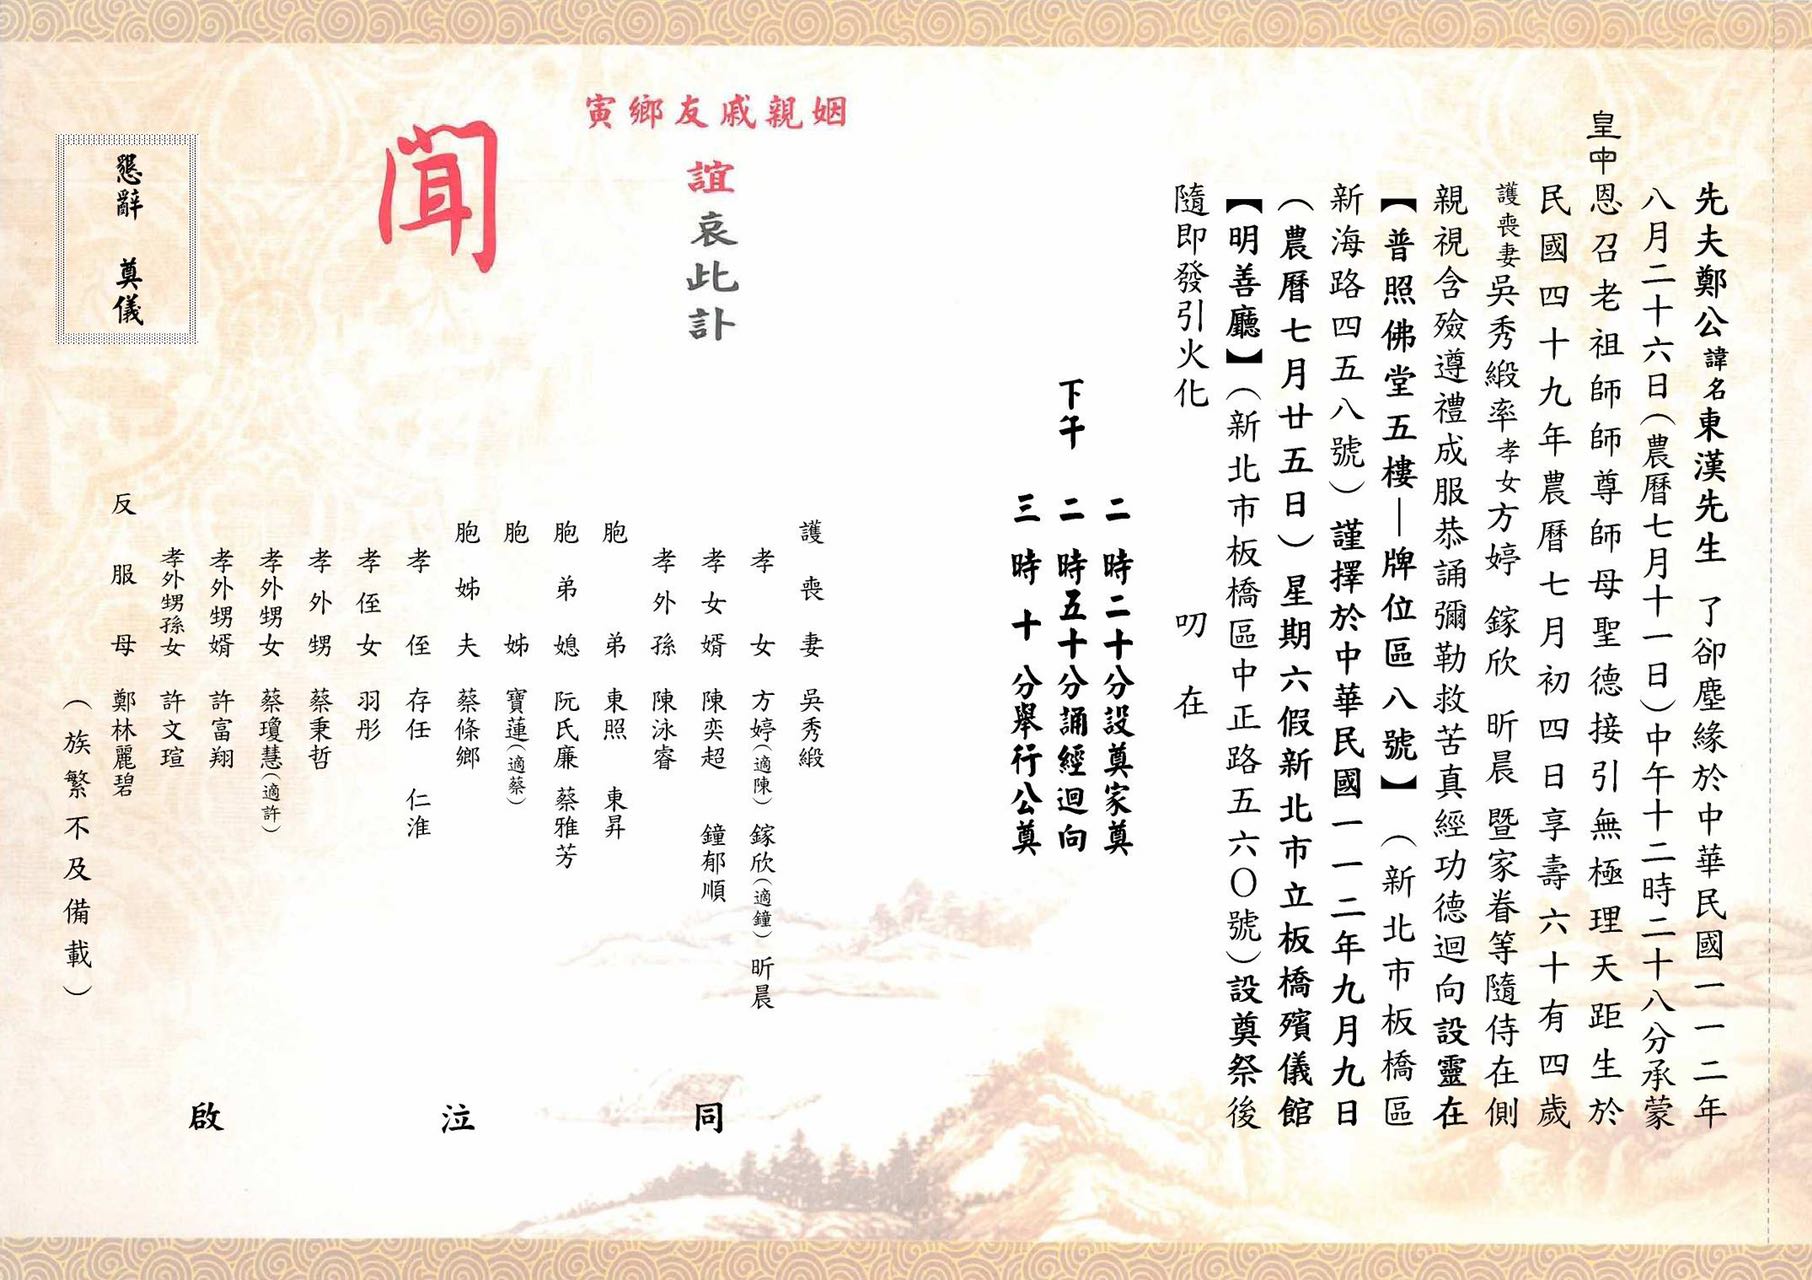 先夫鄭公諱名東漢先生 了卻塵緣於中華民國一一二年
八月二十六日(農曆七月十一日)中午十二時二十八分承蒙
皇中恩召老祖師師尊師母聖德接引無極理天距生於
民國四十九年農曆七月初四日享壽六十有四歲
護喪妻吳秀緞率孝女方婷 鎵欣 昕晨 暨家眷等隨侍在側
親視含殮遵禮成服恭誦彌勒救苦真經功德迴向設靈在
【普照佛堂五樓—牌位區八號】(新北市板橋區
新海路四五八號)謹擇於中華民國一一二年九月九日
(農曆七月廿五日)星期六假新北市立板橋殯儀館
【明善廳】(新北市板橋區中正路五六〇號)設奠祭後
隨即發引火化 叨在
二時二十分設奠家奠
下午 二時五十分誦經迴向
三時十分舉行公奠
姻親戚友鄉寅
誼哀此訃
聞
護喪妻 吳秀緞
孝女 方婷(適陳) 鎵欣(適鐘) 昕晨
孝女婿 陳奕超 鐘郁順
孝外孫 陳泳睿
胞弟 東照 東昇
胞弟媳 阮氏廉 蔡雅芳
胞姊 寶蓮(適蔡)
胞姊夫 蔡條鄉
孝侄 存任 仁淮
孝侄女 羽彤
孝外甥 蔡秉哲
孝外甥女 蔡瓊慧(適許)
孝外甥婿 許富翔
孝外甥孫女 許文瑄
反服母 鄭林麗碧
(族繁不及備載)
同泣啟
懇辭 奠儀